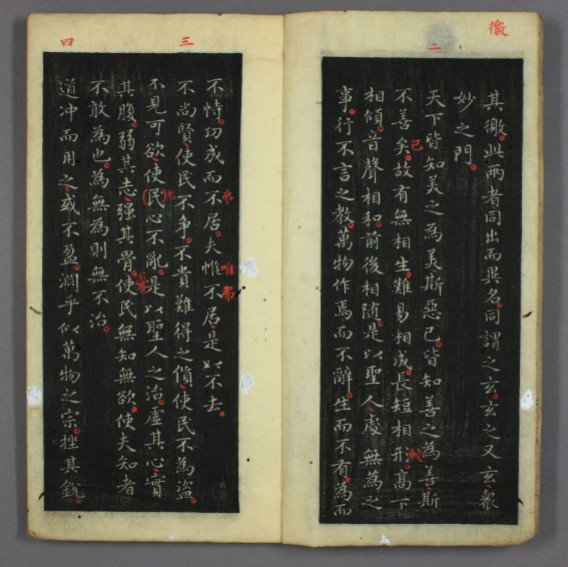 徼
二
其徼此兩者同出而異名同謂之玄玄之又玄衆
妙之門
天下皆知美之為美斯惡已皆知善之為善斯
不善矣故有無相生難易相成長短相形髙下
已
相傾音聲相和前後相隨是以聖人處無為之
事行不言之教萬物作焉而不辭生而不有為而
三
四
不恃功成而不居夫惟不居是以不去
弗
唯弗
不尚賢使民不争不貴難得之貨使民不為盜
不見可欲使(民)心不亂是以聖人之治虛其心實
其腹弱其志强其骨使民無知無欲使夫知者
不敢為也為無為則無不治
道冲而用之或不盈淵乎似萬物之宗挫其銳